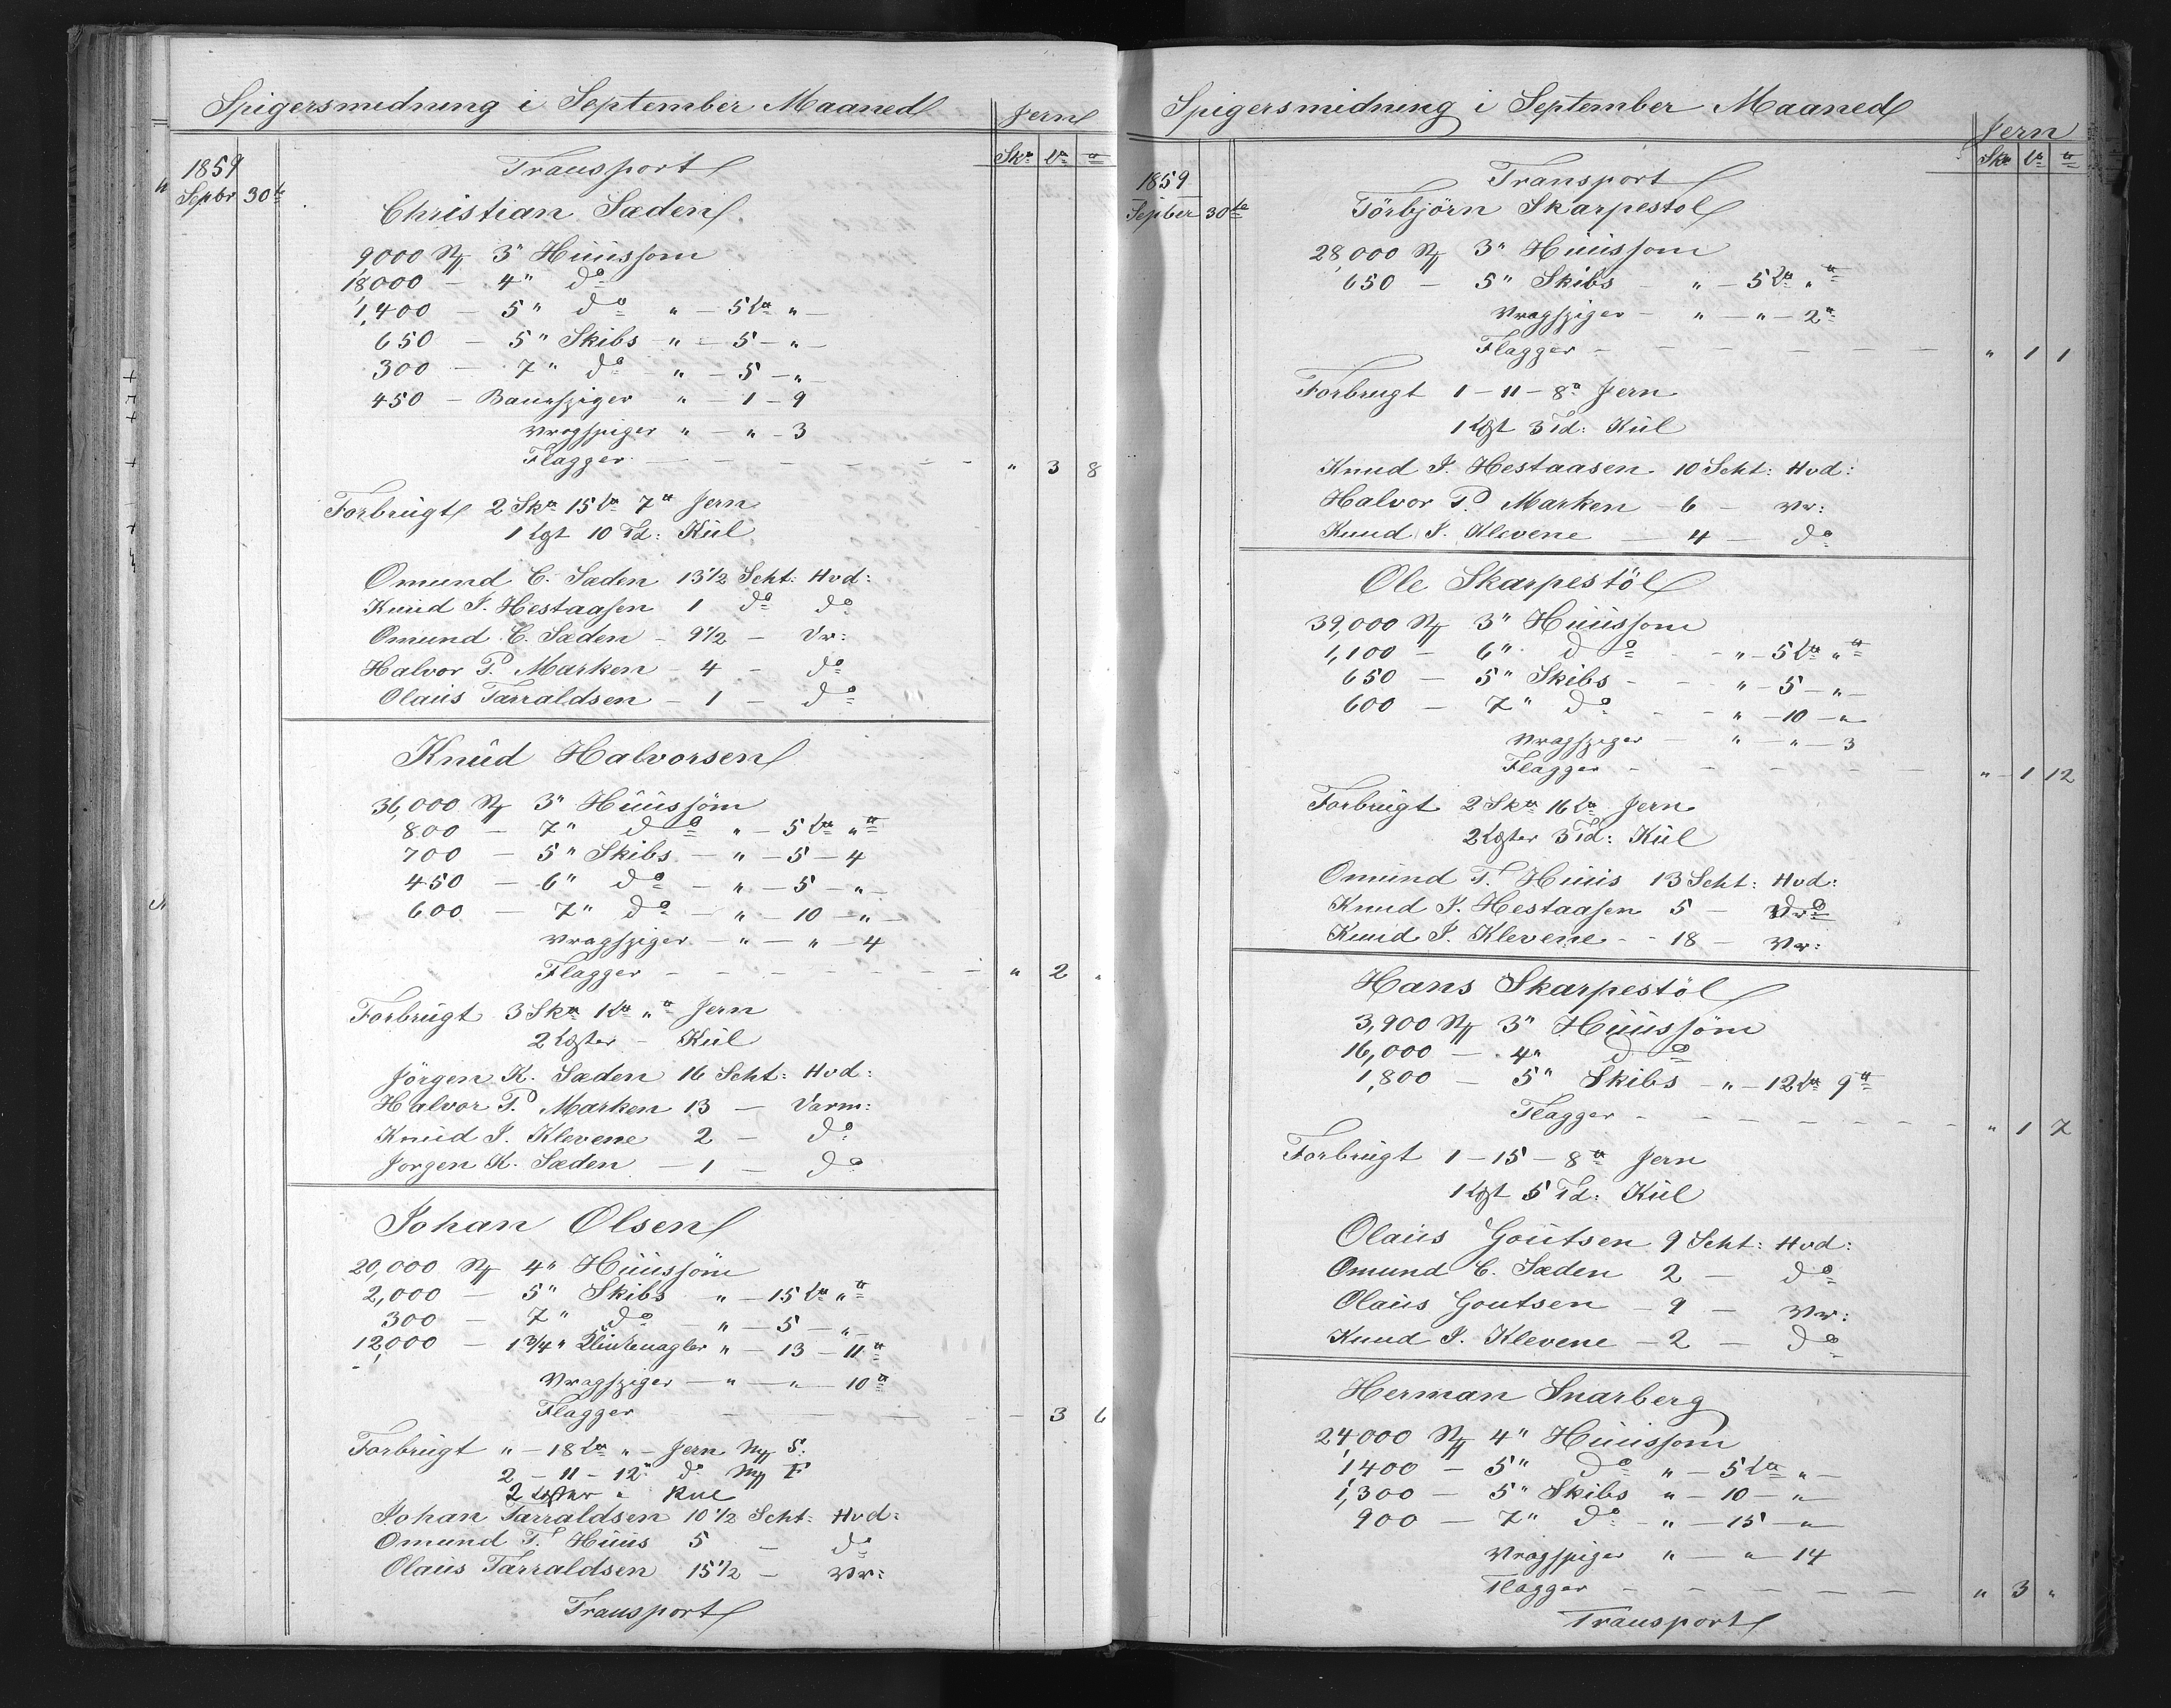 Spigersmedning i September Maaned
Jern
Sk℔ L℔ ℔
1859
Septbr 30te
Transport
Christian Sæden
9,000 St 3" Huussøm
18,000 — 4" do
1,400 — 5" do " — 5 L℔ " —
650 — 5" Skibs — " — 5 — " —
300 — 7" do — " — 5 — " —
450 — Baandspiger — " — 1 — 9
Vragspiger " — " — 3
Flagger — — — — — " 3 8
Forbrugt 2 Sk℔ 15 L℔ 7 ℔ Jern
1 Lgt 10 Td: Kül
Omund C. Sæden 13 1/2 Scht: Hvd:
Knud J. Hestaasen 1 do do
Omund C. Sæden — 9 1/2 — Vr:
Halvor P. Marken — 4 — do
Olaus Tarraldsen — 1 — do
Knud Halvorsen
36,000 St 3" Huussøm
800 — 7" do " — 5 L℔ " ℔
700 — 5" Skibs — " — 5 — 4
450 — 6" do — " — 5 — " —
600 — 7" do — " — 10 — " —
Vragspiger — " — " — 4
Flagger — — — — — — " 2 "
Forbrugt 3 Sk℔ 1 L℔ " ℔ Jern
2 Lgter — Kül
Jörgen K. Sæden 16 Scht: Hvd:
Halvor P. Marken 13 — Varm:
Knud J. Klevene 2 — do
Jorgen K. Sæden — 1 — do
Johan Olsen
20,000 St 4" Huussøm
2,000 — 5" Skibs " — 15 L℔ " ℔
300 — 7" do — " — 5 — " —
12,000 — 1 3/4" Klinknagler " — 13 — 11 ℔
Vragspiger — " — " — 10 ℔
Flagger — — — — — 3 6
Forbrugt " — 18 L℔ " — Jern Mk S.
2 — 11 — 12 ℔ do Mk F
2 Lgter " Kul
Johan Tarraldsen 10 1/2 Scht: Hvd:
Omund T. Huus 5 — do
Olaus Tarraldsen 15 1/2 — Vr:
Transport
Spigersmedning i September Maaned
Jern
Sk℔ L℔ ℔
1859
Septber 30te
Transport
Törbjörn Skarpestöl
28,000 St 3" Huussom
650 — 5" Skibs — " — 5 L℔ " ℔
Vragspiger — " — " — 2 ℔
Flagger — — — — — — " 1 1
Forbrugt 1 — 11 — 8 ℔ Jern
1 Lgt 3 Td: Kül
Knud J. Hestaasen 10 Scht: Hvd:
Halvor P. Marken — 6 — Vr:
Knud J. Klevene — 4 — do
Ole Skarpestöl
39,000 St 3" Huussom
1,100 — 6" do — " — 5 L℔ " ℔
650 — 5" Skibs — — " — 5 — " —
600 — 7" do — — " — 10 — "
Vragspiger — " — " — 3
Flagger — — — — — " — 1 12
Forbrugt 2 Sk℔ 16 L℔ Jern
2 Lgter 3 Td: Kül
Omund T. Huus 13 Scht: Hvd:
Knud J. Hestaasen 5 — do
Knud J. Klevene — — 18 — Vr:
Hans Skarpestöl
3,900 St 3" Huussöm
16,000 — 4" do
1,800 — 5" Skibs — " — 12 L℔ 9 ℔
Flagger — — — — — — " 1 7
Forbrugt 1 — 15 — 8 ℔ Jern
1 Lgt 5 Td: Kül
Olaus Goutsen 9 Scht: Hvd:
Omund C. Sæden 2 — do
Olaus Goutsen — 9 — Vr:
Knud J. Klevene — 2 — do
Herman Snarberg
24,000 St 4" Huussom
1,400 — 5" do " — 5 L℔ " —
1,300 — 5" Skibs " — 10 — "
900 — 7" do — " — 15 — "
Vragspiger " — " — 14
Flagger — — — — — " 3 "
Transport